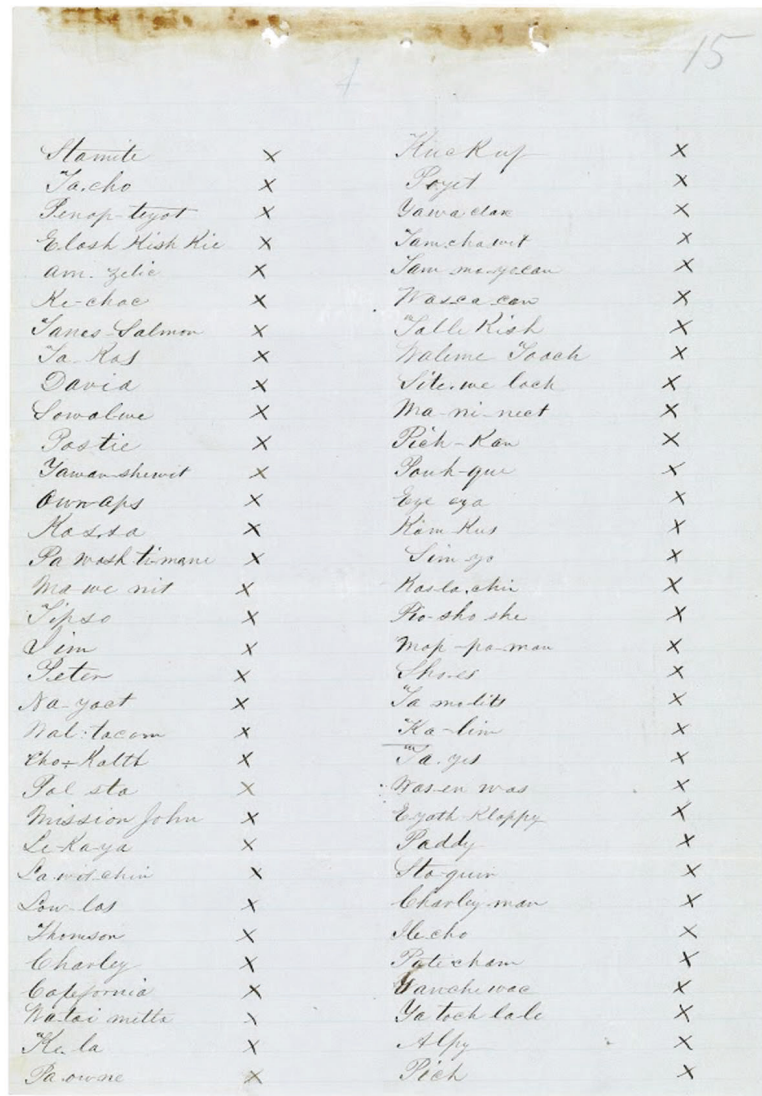 4
15
Stamite X
Ta.cho X
Penap-teyot X
E.losh Kish Kie X
Am. Zelie X
Ke-choc X
Janes Salmon X
Ta. Kas X
David X
Sowalwe X
Postie X
Yawan-shewit X
Own-aps X
Kas.sa X
Pa wash ti-mane X
Ma-we nit X
Tipso X
Jim X
Peter X
Na-yact X
Wal-tacom X
Pal sta X
Mission John X
Le-Ka-ya X
Low-las X
Thomson X
Charley X
California X
Wa-tai mitta X
Ke.la X
Pa-owne X
Kuckup X
Poyet X
Yawa clax X
Tam.cha wit X
Tam-ma-yecan X
Wasca can X
Talle Kish X
Waleme Tooch X
Site.we loch X
Ma-ni-nect X
Pich-Kan X
Pouh-que X
Eye eya X
Kam Kus X
Sim-yo X
Kas-la.chin X
Pio-sho she X
Map-pa-man X
Sho-es X
Ta malits X
Ka-lim X
Ta.yes X
Was-en was X
Eyath-Klappy X
Paddy X
Sto-quin X
Charley-man X
He.cho X
Pate-cham X
Yanche wac X
Ya toch lale X
Alpy X
Pich X